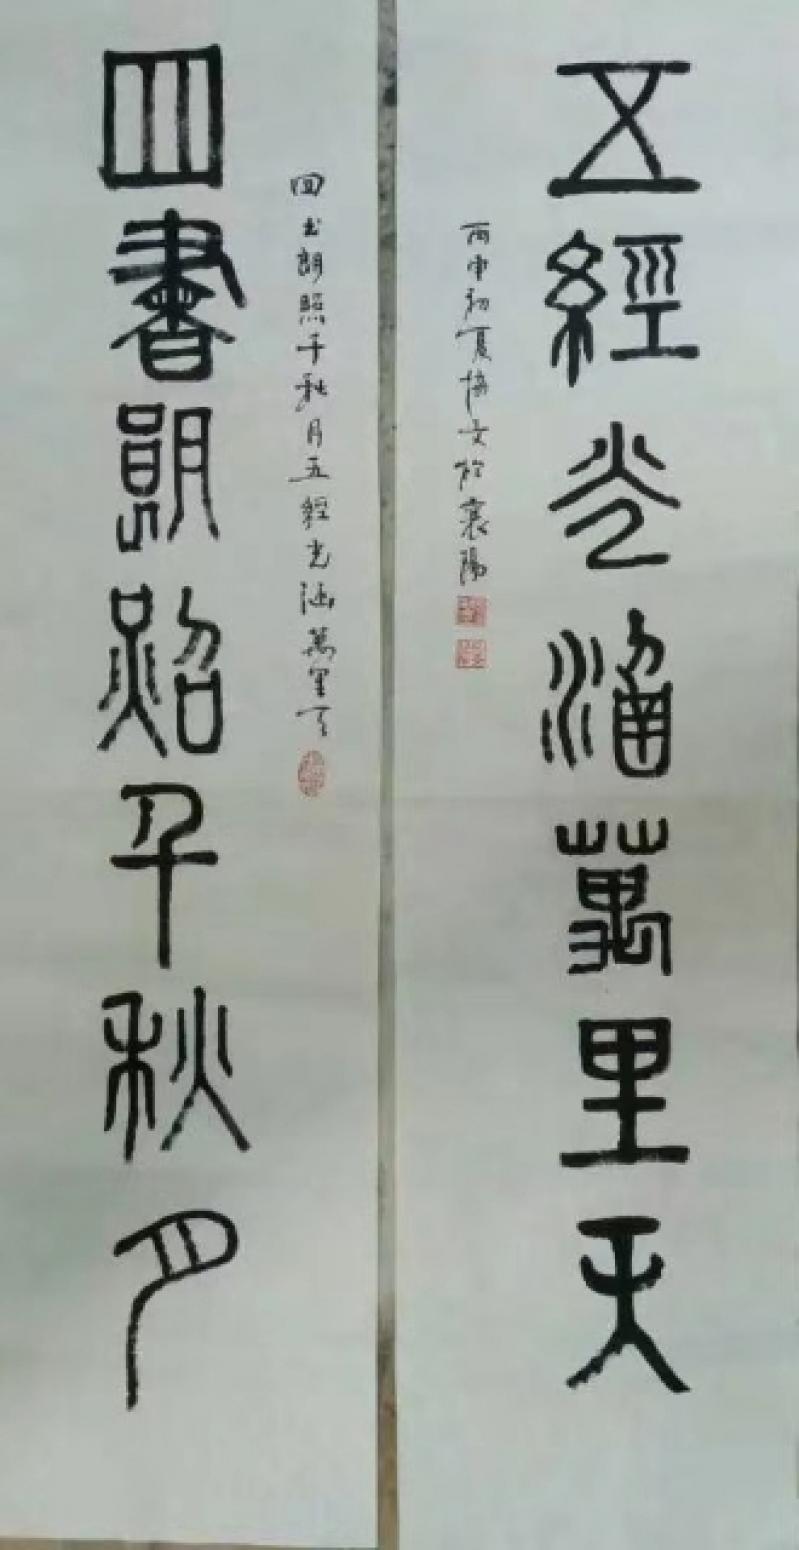 五經光涵萬里天
丙申初夏協文於襄陽
四書朗照千秋月
四书朗照千秋月五經光涵萬里天